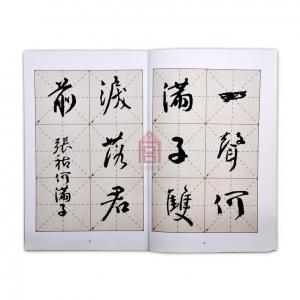 一聲何
滿子雙
淚落君
前
張祜何滿子